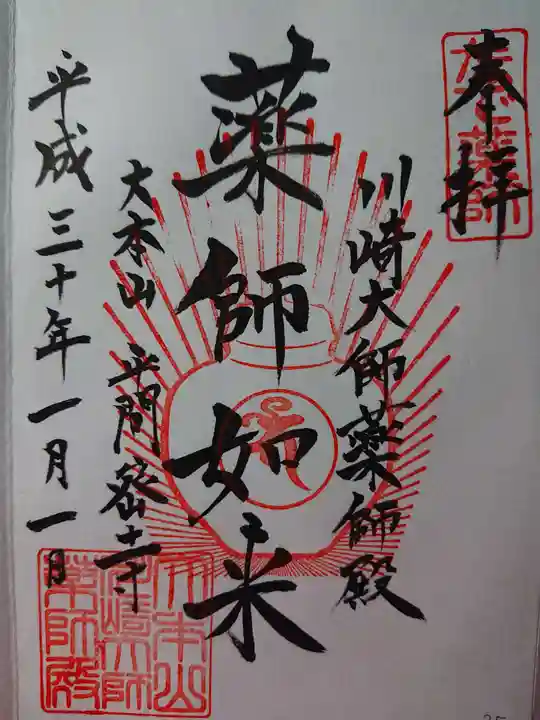 奉拝
川崎大師薬師殿
薬師如来
大本山 平間寺
平成三十年一月一日
大本山
川崎大師
薬師殿